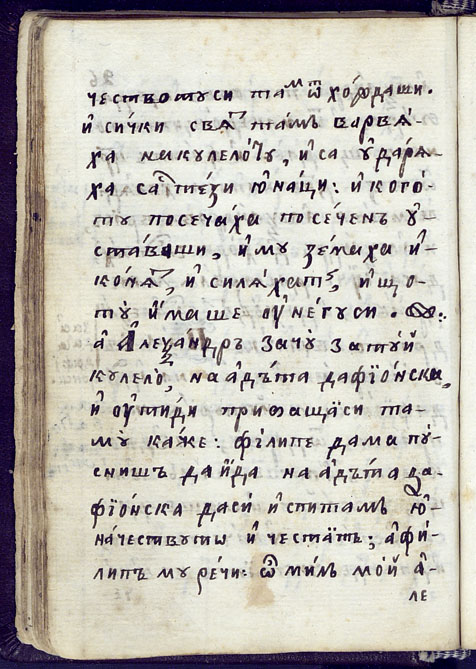 чествотуси там ѿ хо́рдаши.
и҆ си́чки свѧ́т тамъ варвѧ́-
ха на кулело́ту, и҆ са у҆дарѧ-
ха са тези ю҆на́ци: и҆ кого́-
ту посеча́ха посе́ченъ у҆-
ста́ваши, и҆ му зе́маха и҆
конѧ̀, и҆ силѧ́хатъ, и҆ що-
ту̀ и҆́маше оу҆ не́гуси.
а҆ А҆леѯа́ндръ зачу̀ за ту́й
кулело̀, на а҆дъ́та дафїо́нска,
и҆ оу҆ти́ди при баща́си та-
му̀ ка́же: фїли́пе да ма пу́-
снишъ да и҆́да на а҆дъ́та да-
фїо́нска да си́ и҆спи́тамъ ю҆-
на́чествуту и҆ честа́тъ; а҆ фи-
ли́пъ му речи: ѽ ми́лъ мо́й а҆-
ле